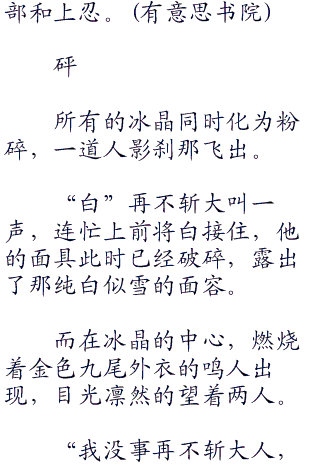 部和上忍。(有意思书院)
砰
所有的冰晶同时化为粉
碎，一道人影刹那飞出。
“白”再不斩大叫一
声，连忙上前将白接住，他
的面具此时已经破碎，露出
了那纯白似雪的面容。
而在冰晶的中心，燃烧
着金色九尾外衣的鸣人出
现，目光凛然的望着两人。
“我没事再不斩大人，